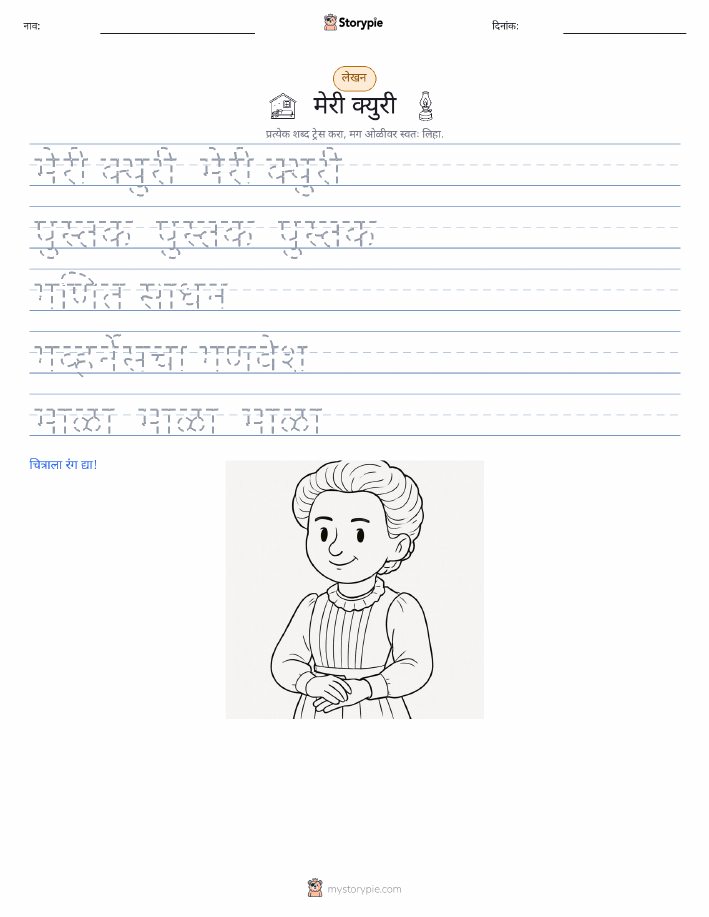 नाव:
Storypie
दिनांक:
लेखन
मेरी क्युरी
प्रत्येक शब्द ट्रेस करा, मग ओळीवर स्वतः लिहा.
मेरी क्युरी मेरी क्युरी
पुस्तक पुस्तक पुस्तक
गणित साधन
गव्हर्नेसचा गणवेश
माळा माळा माळा
चित्राला रंग द्या!
mystorypie.com